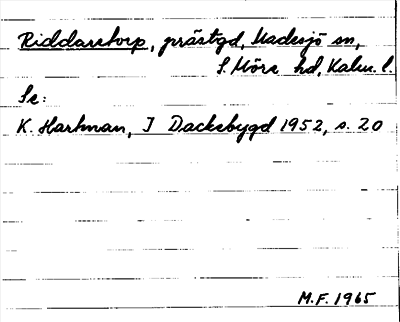 Riddaretorp, prästgd, Madesjö sn,
S. Möre hd, Kalm. l.
Se:
K. Hartman, I Dackebygd 1952, s. 20
M.F. 1965